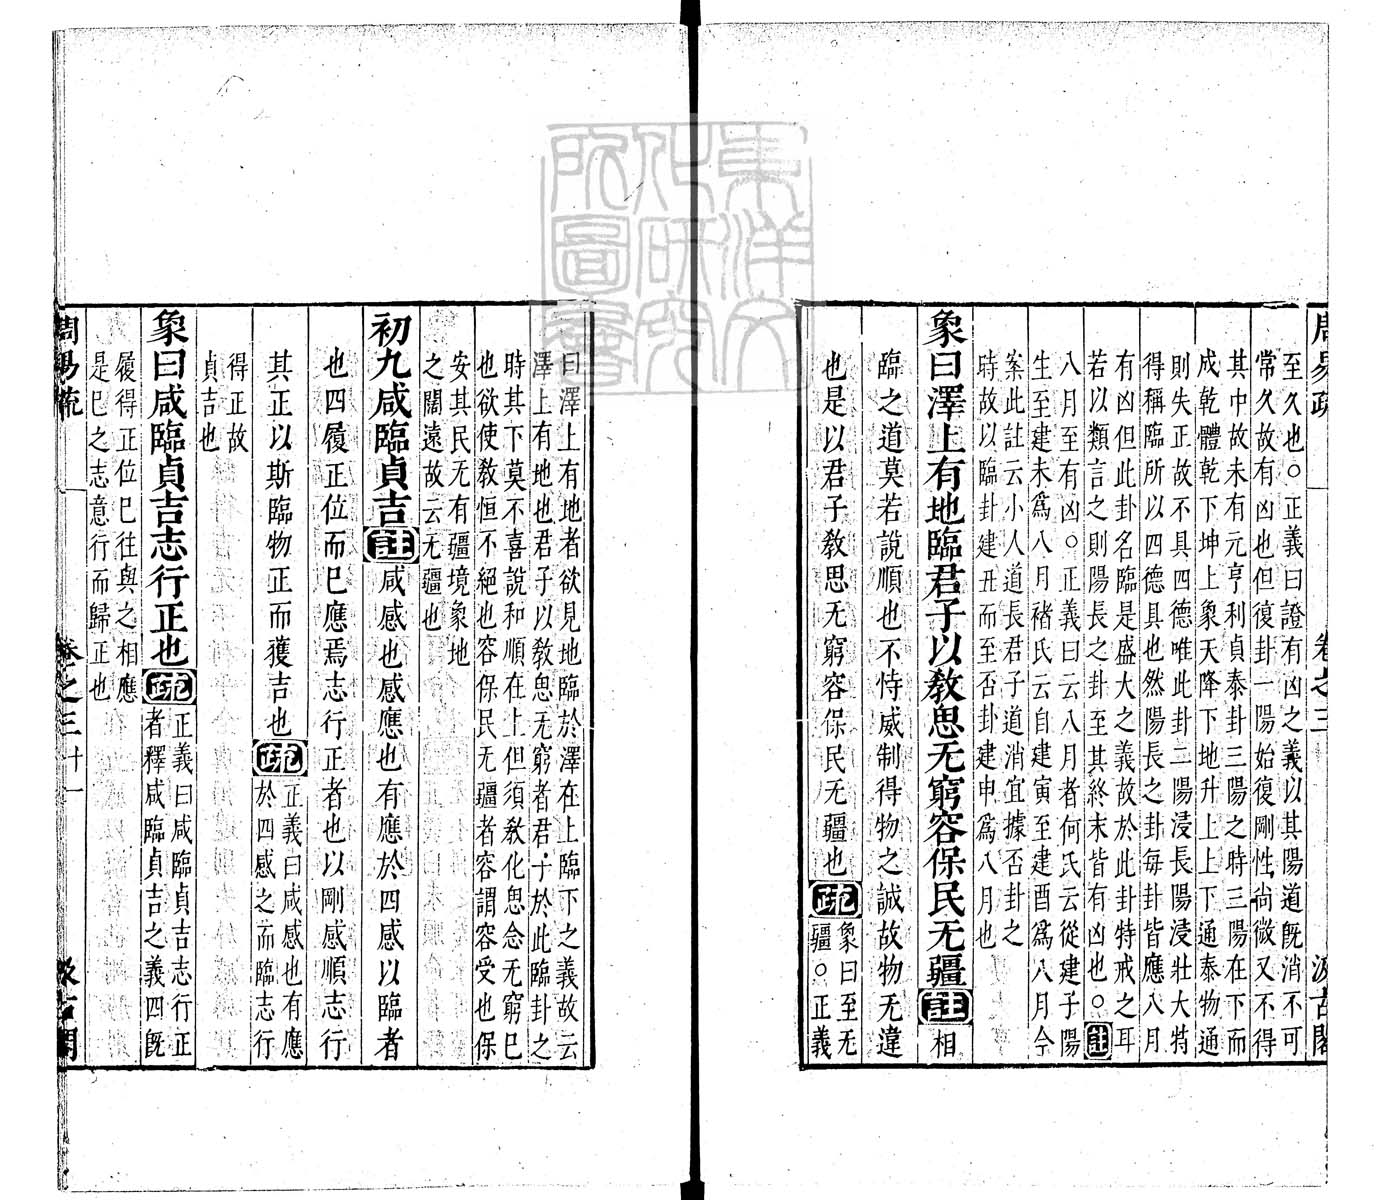 周易疏 卷之三 汲古閣
至久也○正義曰證有凶之義以其陽道既消不可
常久故有凶也但復卦一陽始復剛性尚微又不得
其中故未有元亨利貞泰卦三陽之時三陽在下而
成乾體乾下坤上象天降下地升上上下通泰物通
則失正故不具四德唯此卦二陽浸長陽浸壯大特
得稱臨所以四德具也然陽長之卦每卦皆應八月
有凶但此卦名臨是盛大之義故於此卦特戒之耳
若以類言之則陽長之卦至其終末皆有凶也○註
八月至有凶○正義曰云八月者何氏云從建子陽
生至建未為八月褚氏云自建寅至建酉為八月今
案此註云小人道長君子道消宜據否卦之
時故以臨卦建丑而至否卦建申為八月也
象曰澤上有地臨君子以教思无窮容保民无疆註相
臨之道莫若說順也不恃威制得物之誠故物无違
也是以君子教思无窮容保民无疆也疏象曰至无
疆○正義
曰澤上有地者欲見地臨於澤在上臨下之義故云
澤上有地也君子以教思无窮者君子於此臨卦之
時其下莫不喜說和順在上但須教化思念无窮已
也欲使教恒不絕也容保民无疆者容謂容受也保
安其民无有疆境象地
之闊遠故云无疆也
初九咸臨貞吉註咸感也感應也有應於四感以臨者
也四履正位而已應焉志行正者也以剛感順志行
其正以斯臨物正而獲吉也疏正義曰咸感也有應
於四感之而臨志行
得正故
貞吉也
象曰咸臨貞吉志行正也疏正義曰咸臨貞吉志行正
者釋咸臨貞吉之義四既
履得正位已往與之相應
是已之志意行而歸正也
周易疏 卷之三 十一 汲古閣
東洋文化研究所圖書